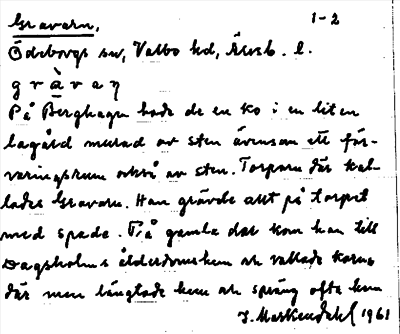 Gravarn, 1-2
Ödeborgs sn, Valbo hd, Älvsb. l.
g r à v a ɳ
På Berghagen hade de en ko i en liten
lagård murad av sten ävensom ett för-
varingsrum också av sten. Torparn där kal-
lades Gravarn. Han grävde allt på torpet
med spade. På gamla dar kom han till
Dagsholms ålderdomshem och vallade korna
där men längtade hem och sprang ofta hem
J. Markendahl 1961